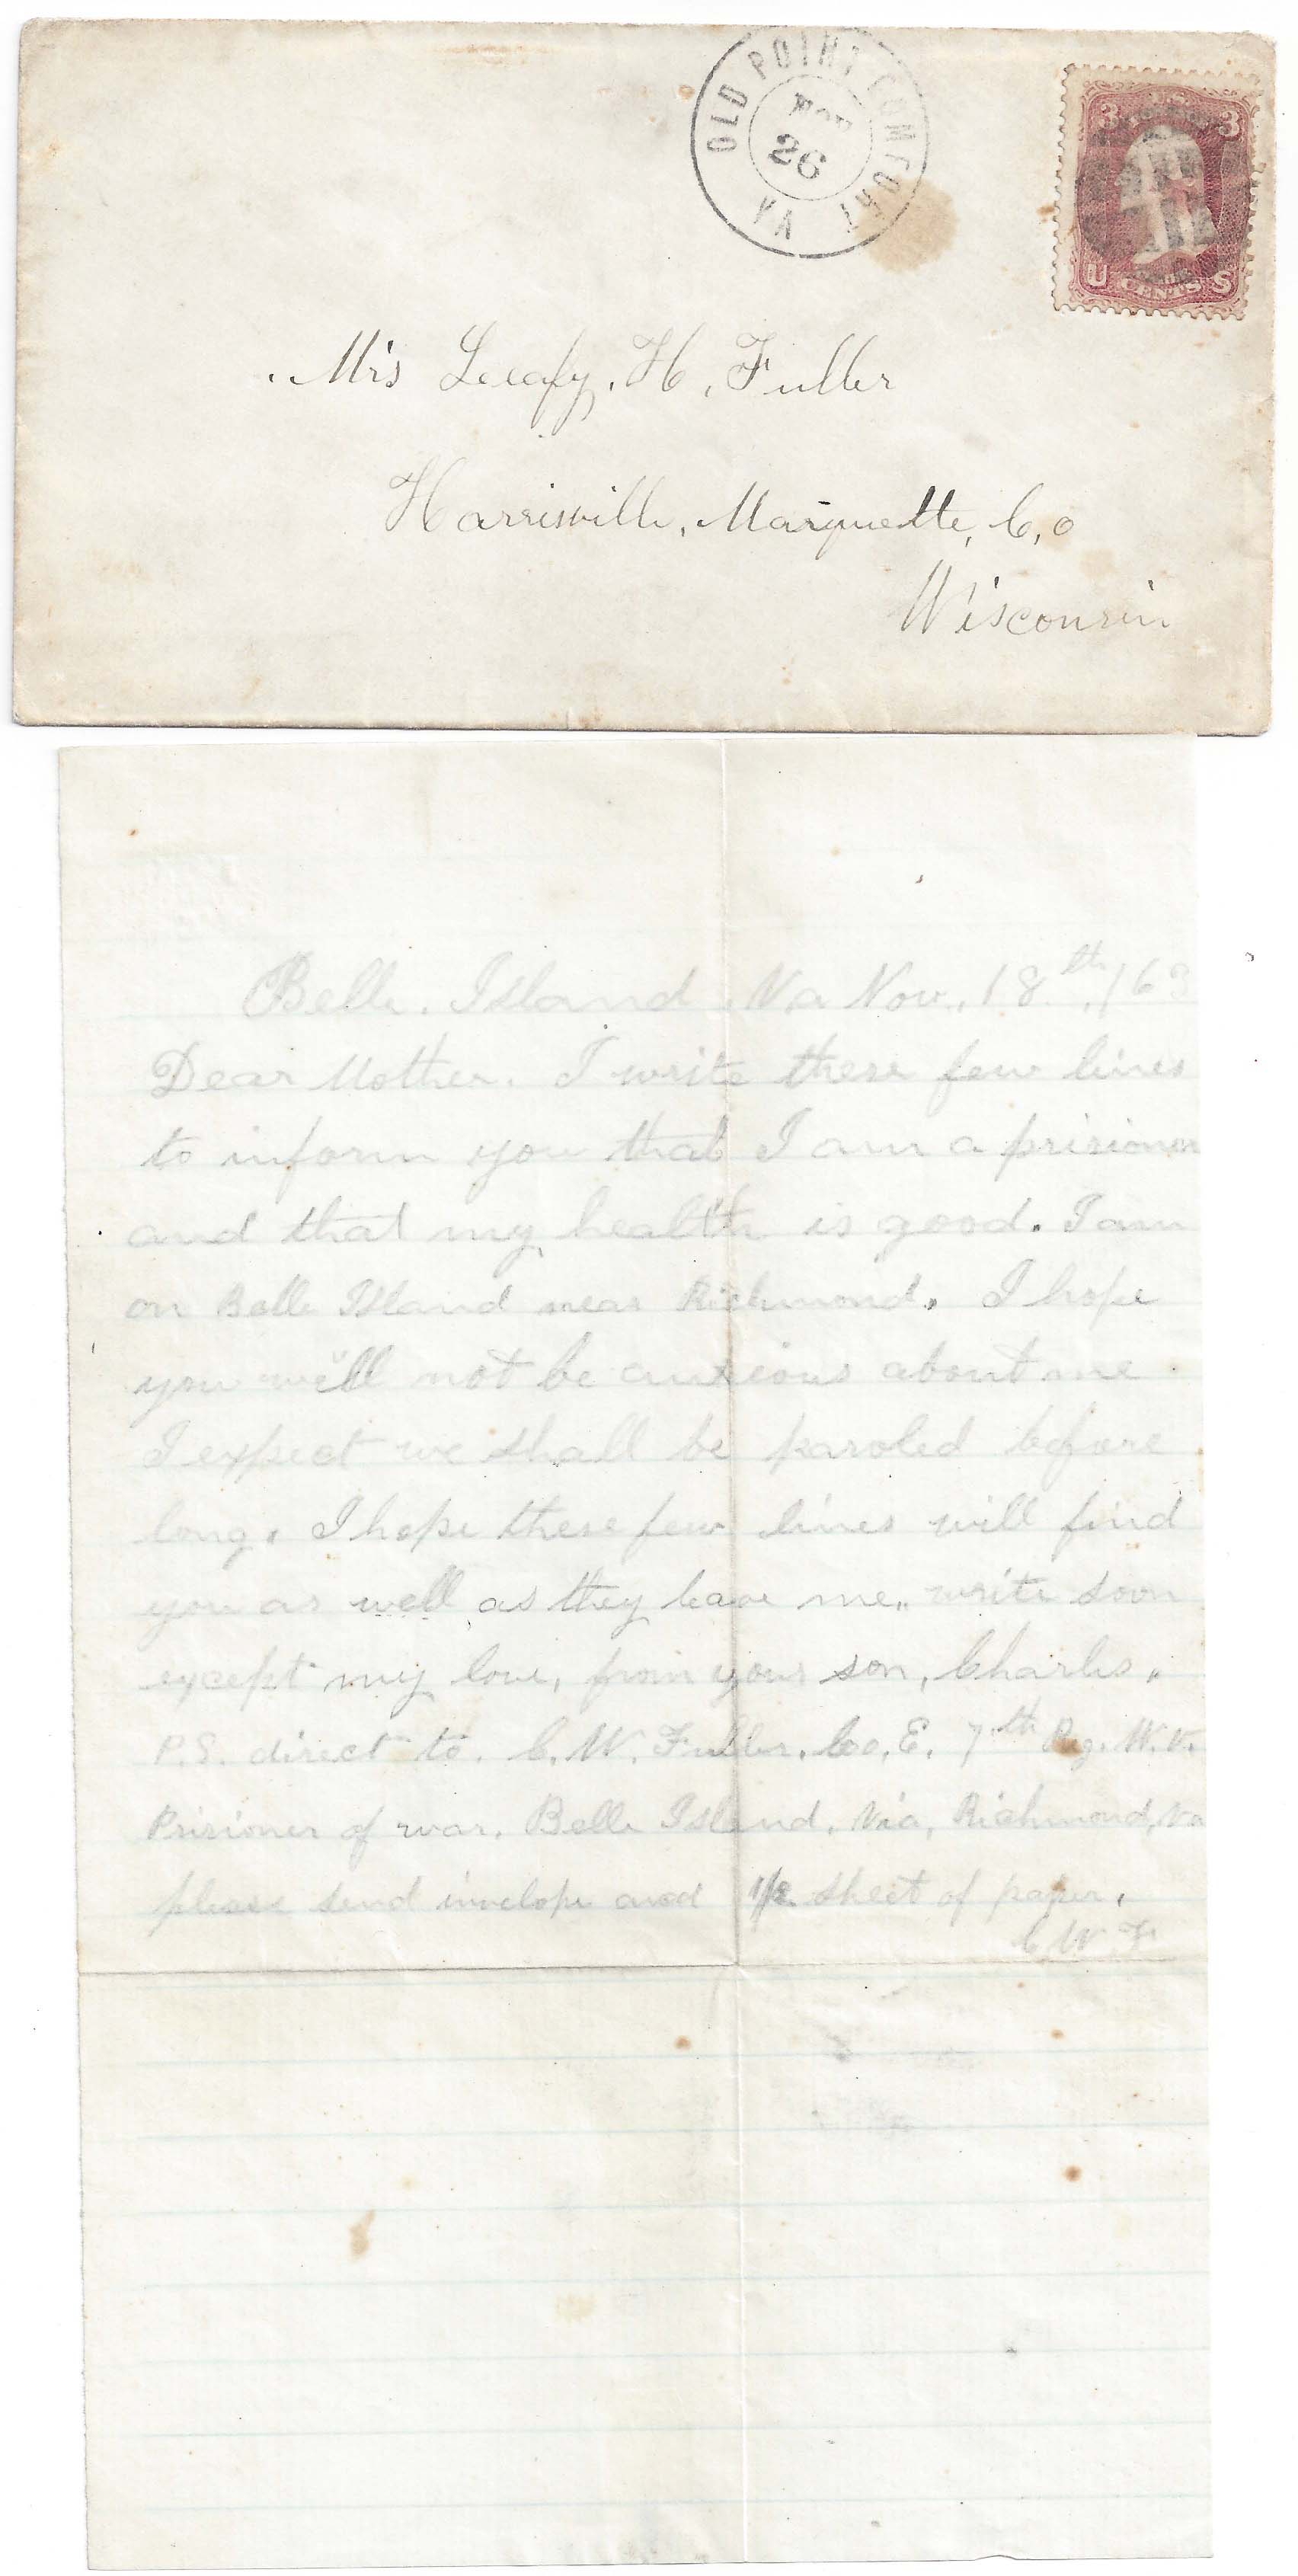 OLD POINT COMFORT
NOV
26
VA
3 3
U S
CENTS
Mrs Leafy. H. Fuller
Harrisville, Marquette, C,o
Wisconsin
Belle. Island. Va Nov. 18th, /63
Dear Mother. I write these few lines
to inform you that I am a prisioner
and that my health is good. I am
on Belle Island near Richmond. I hope
you will not be anxious about me
I expect we shall be paroled before
long. I hope these few lines will find
you as well as they leave me,, write soon
except my love, from your son, Charles.
P.S. direct to. C. W. Fuller. Co. E. 7th Reg. W.V.
Prisioner of war. Belle Island. Via, Richmond, Va
please send invelope and 1/2 sheet of paper.
C W F